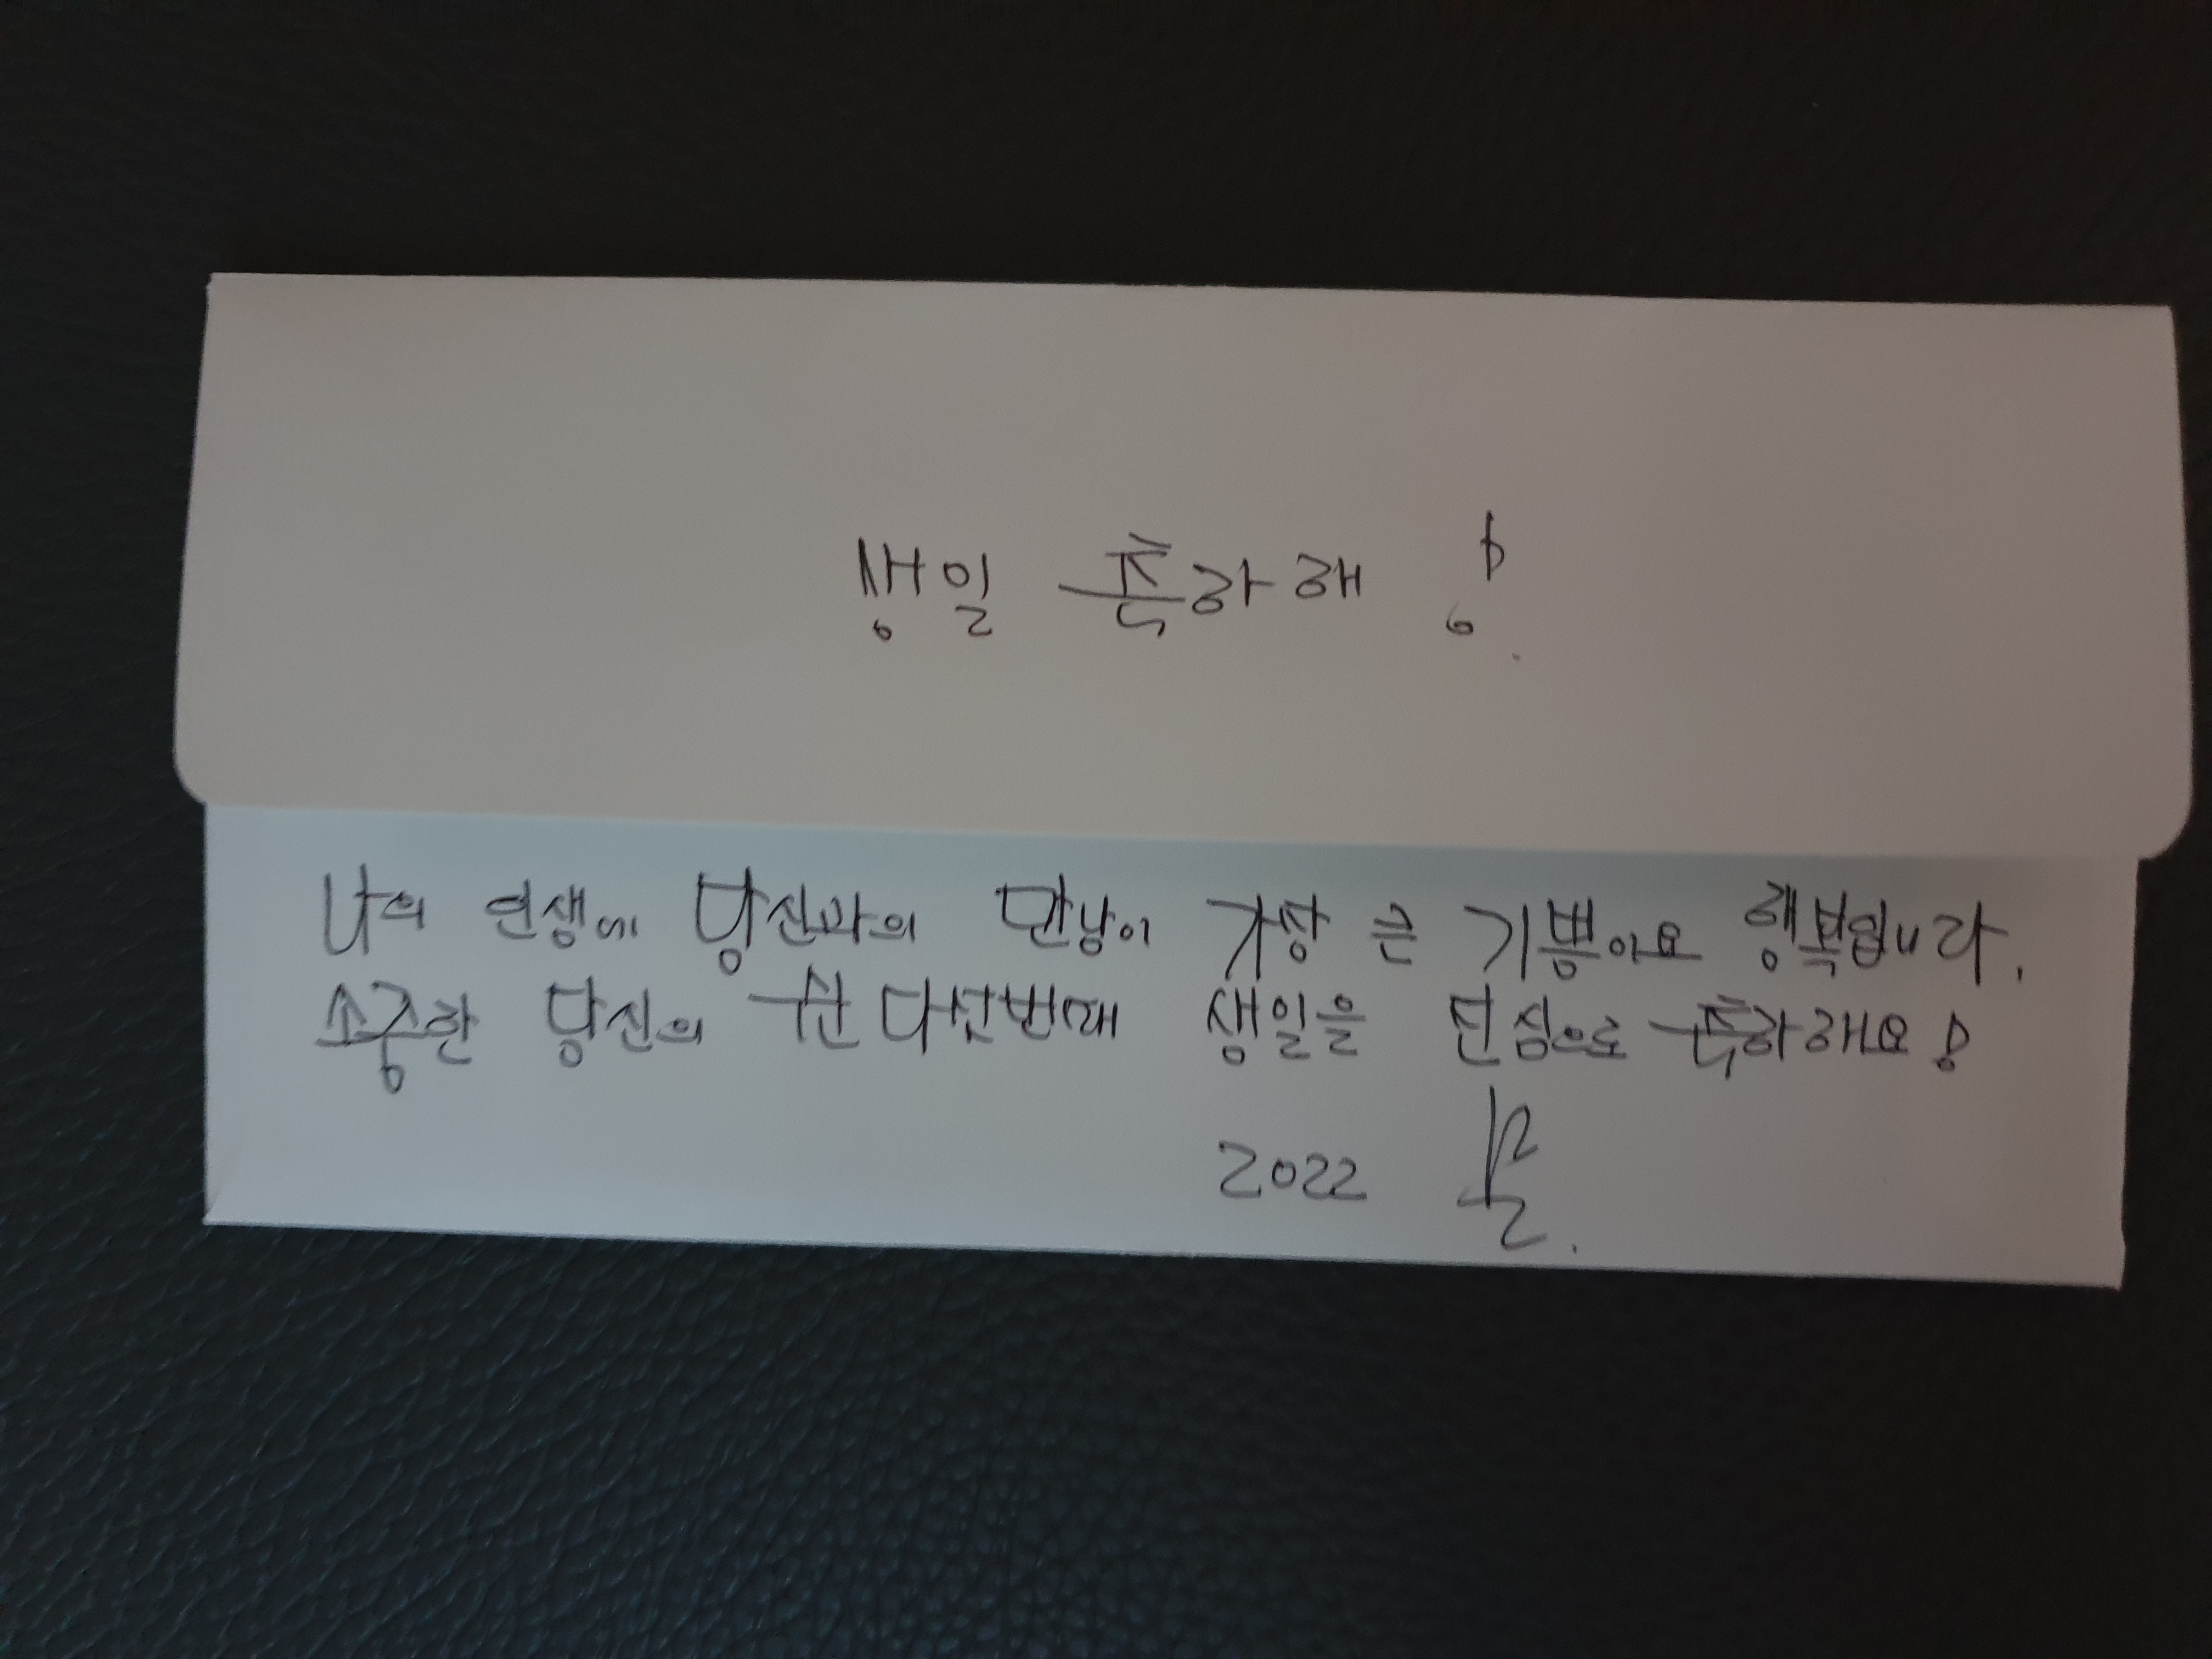 생일 축하해 !
나의 인생에 당신과의 만남이 가장 큰 기쁨이요 행복입니다.
소중한 당신의 쉰 다섯번째 생일을 진심으로 축하해요!
2022